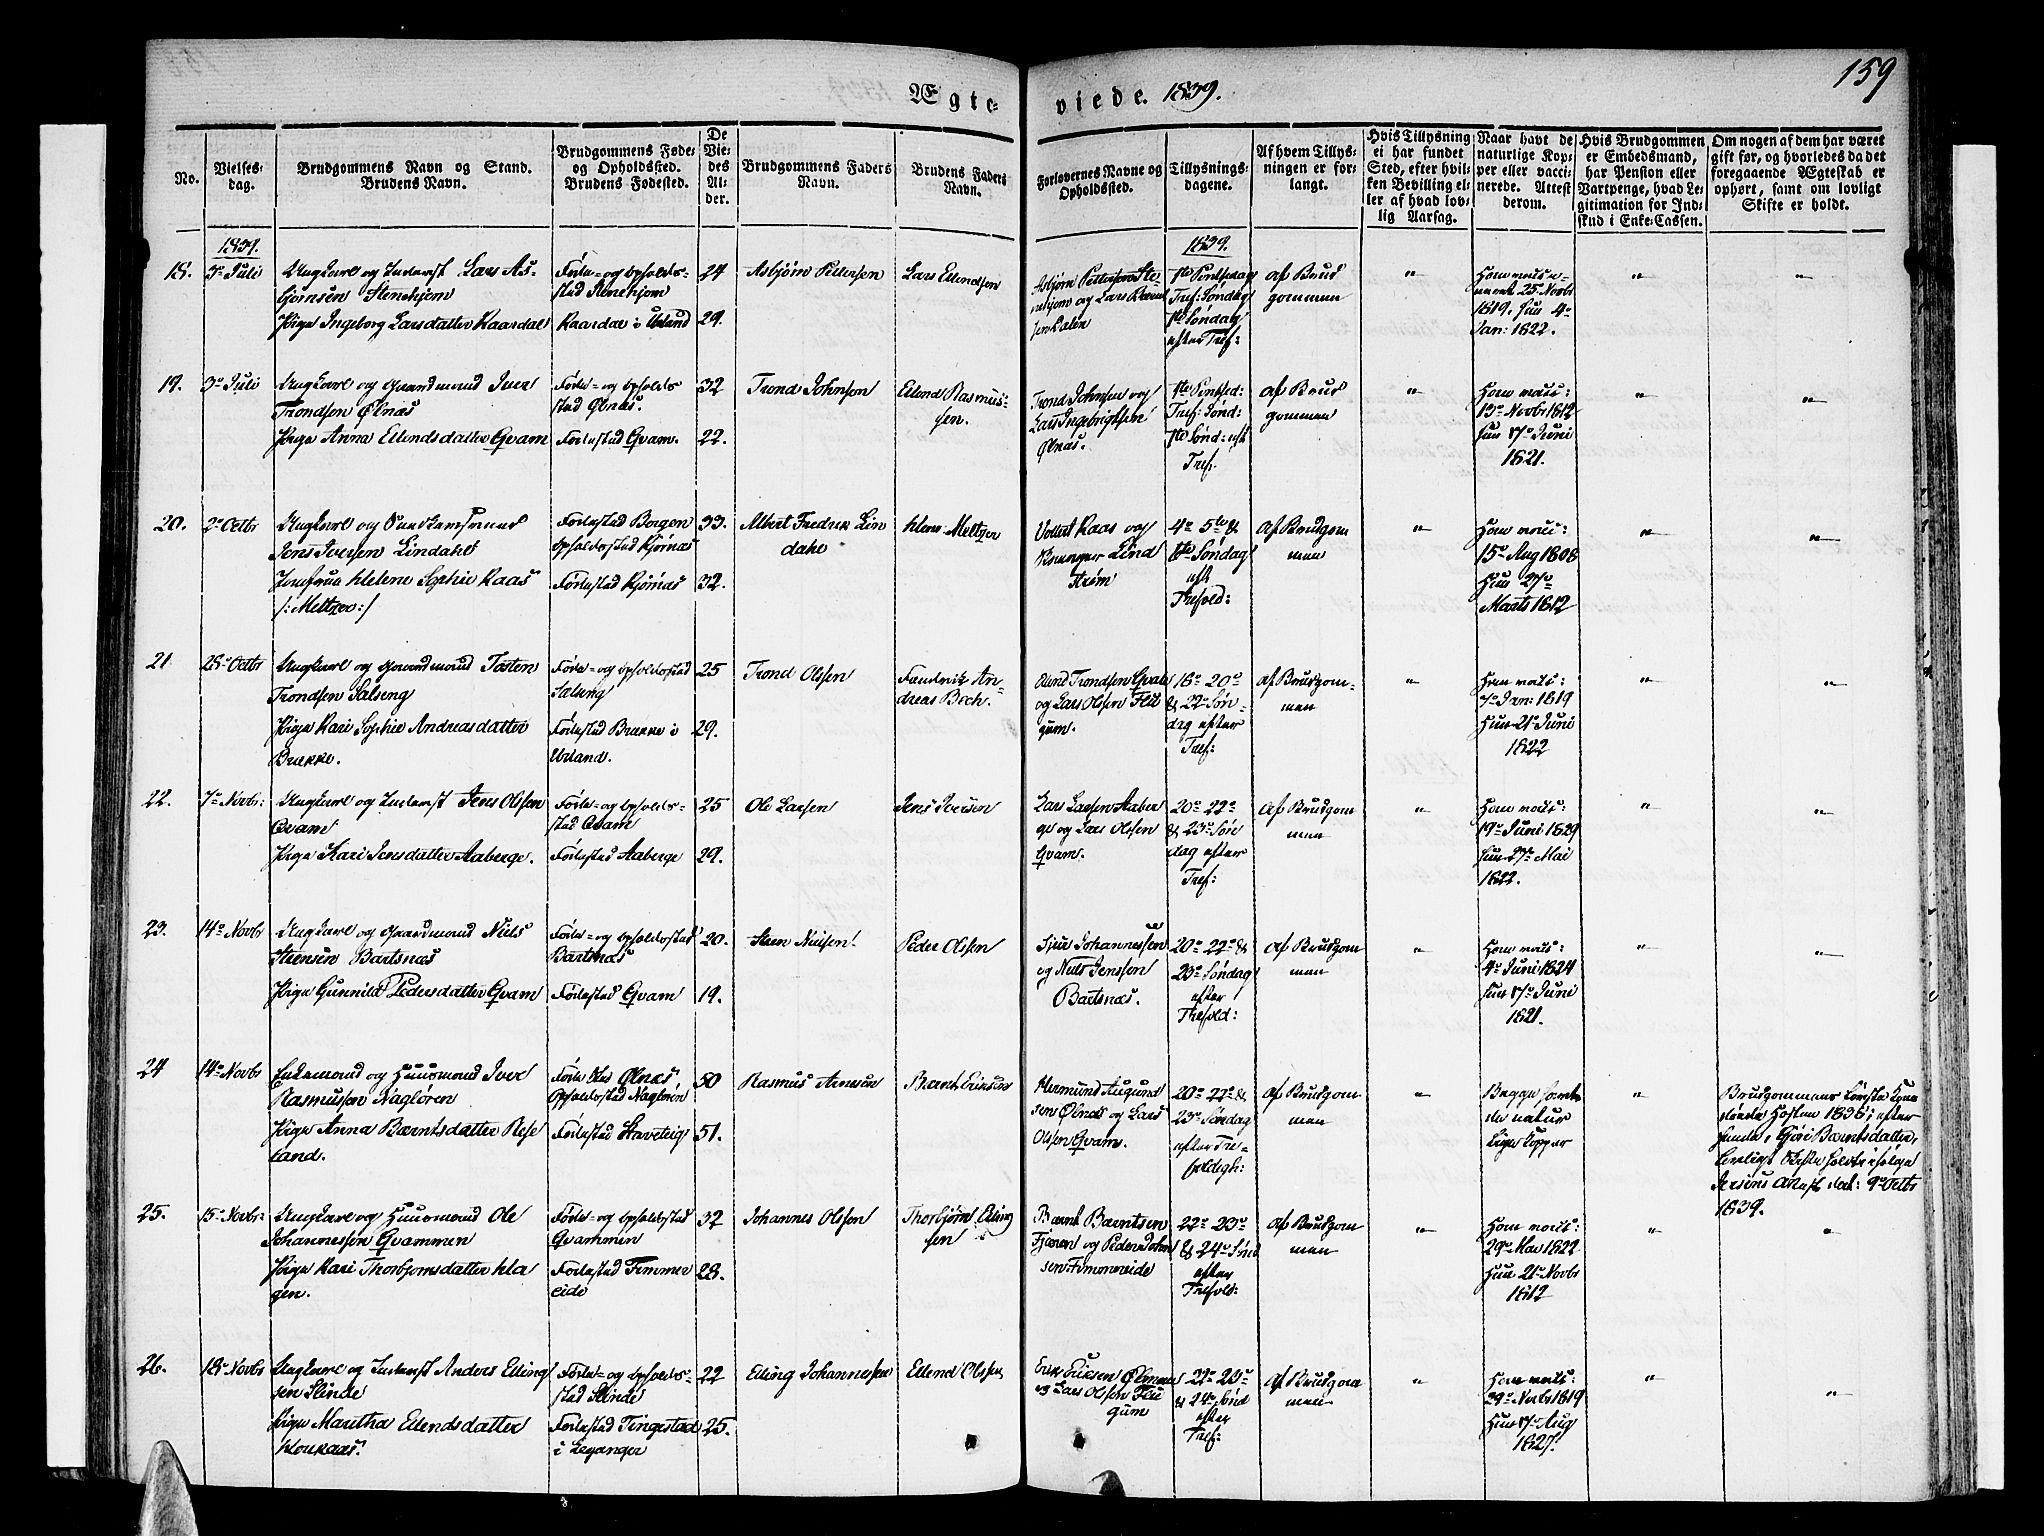 159
Ægte-
viede. 1839.
No.
Vielses-
dag.
Brudgommens Navn og Stand.
Brudens Navn.
Brudgommens Føde-
og Opholdssted.
Brudens Fødested.
De
Vie-
des
Al-
der.
Brudgommens Faders
Navn.
Brudens Faders
Navn.
Forlovernes Navne og
Opholdssted.
Tillysnings-
dagene.
Af hvem Tillys-
ningen er for-
langt.
Hvis Tillysning
ei har fundet
Sted, efter hvil-
ken Bevilling el-
ler af hvad lov-
lig Aarsag.
Naar havt de
naturlige Kop-
per eller vacci-
nerede. Attest
derom.
Hvis Brudgommen
er Embedsmand,
har Pension eller
Vartpenge, hvad Le-
gitimation for Ind-
skud i Enke-Cassen.
Om nogen af dem har været
gift før, og hvorledes da det
foregaaende Ægteskab er
ophørt, samt om lovligt
Skifte er holdt.
1839.
1839.
18. 3die Juli
Ungkarl og Inderst Lars As-
bjørnsen Stenehjem
Pige Ingeborg Larsdatter Kaardal
Føde- og Opholds-
sted Stenehjem
Kaardal i Urland
24
29.
Asbjørn Pettersen
Lars Ellendsen
Asbjørn Pettersen Ste-
nehjem og Lars
1ste Pintsedag
Tref: Søndag
1ste Søndag
efter Tref:
af Brud
gommen
"
Ham
25 Novbr
1819. Hun 4de
Jan: 1822.
"
"
19. 3die Juli
Ungkarl og Gaardmand Iver
Trondsen Ølnæs
Pige Anna Ellendsdatter Qvam
Føde- og Opholds
sted Ølnæs.
Fødested Qvam.
32
22.
Trond Johnsen
Ellend Rasmus-
sen.
Trond Johnsen og
Lars Ingebrigtsen
Ølnæs.
1ste Pintsed:
Tref: Sønd:
1ste Sønd: eft
Tref.
af Brud
gommen
"
Ham vacc:
13de Novbr 1812
Hun 17de Juni
1821.
"
"
20. 2den Octbr
Ungkarl og
Jens Iversen Lindahl
Jomfrue Helene Sophie Kaas
/: Meltzer :/
Fødested Bergen
Opholdssted Kjørnæs
Fødested Kjørnæs
33.
32.
Albert Fredrik Lin
dahl
Klaus Meltzer
Vollert Kaas og
Lind
strøm
4de 5te &
6te Søndag
eft
Trefold:
af Brudgom
men
"
Ham vacc:
15de Aug 1808
Hun 27de
Marts 1812
"
"
21 28de Octbr
Ungkarl og Gaardmand Tosten
Trondsen Salseng
Pige Kari Sophie Andreasdatter
Brække.
Føde- og Opholdssted
Salseng
Fødested Brække i
Urland.
25
29.
Trond Olssen
Fredrik An-
dreas Bech.
Trondsen Qvale
og Lars Olssen Flu
gum.
18de 20de
& 22de Søn-
dag efter
Tref:
af Brudgom-
men
"
Ham vacc:
7de Jan: 1819
Hun 21de Juni
1822
"
"
22. 7de Novbr:
Ungkarl og Inderst Jens Olssen
Qvam
Pige Kari Jensdatter Aaberge.
Føde- og Opholds-
sted Qvam
Fødested Aaberge
25
29.
Ole Larsen
Jens Iversen
Lars Larsen Aaber
ge og Lars Olssen
Qvam.
20de 22de
& 23de Søn
dag efter
Tref:
af Brudgom
men
"
Ham vacc:
19de Juni 1829
Hun 27de Mai
1822.
"
"
23. 14de Novbr
Ungkarl og Gaardmand Niels
Stensen Bartsnæs
Pige Gunnild Pedersdatter Qvam
Føde- og Opholdssted
Bartsnæs
Fødested Qvam
20.
19.
Sten Nielsen
Peder Olssen
Sjur Johannessen
og Niels Jenssen
Bartsnæs.
20de 22de &
23de Søndag
efter
Trefold:
af Brudgom
men
"
Ham vacc:
4de Juni 1824
Hun 17de Juni
1821.
"
"
24 14de Novbr
Enkemand og Huusmand Iver
Rasmussen Nagløren
Pige Anna Berntsdatter Rese
land.
Ølnæs,
Opholdssted Nagløren
Fødested Staveteig
50
51.
Rasmus Arnesen
Bernt Eriksen
Hermund Augund
sen Ølnæs og Lars
Olssen Qvam.
20de 22de &
23de Søndag
efter Tre-
foldigh:
af Brudgom
men
"
Begge havt
de natur
lige Kopper
"
Brudgommens første Kone
døde Høsten 1838; efter
hende, Gjøri Berntsdatter,
er lovligt Skifte holdt ifølge
Attest dat: 9de Octbr
1839.
25. 15de Novbr:
Ungkarl og Huusmand Ole
Johannessen Qvammen
Pige Kari Thorbjørnsdatter Ha
gen.
Føde- og Opholdssted
Qvammen
Fødested Fimmer
eide
32
28.
Johannes Olssen
Thorbjørn Elling
sen
Bernt Berntsen
Fjæren og Peder John
sen Fimmereide
22de 23de
& 24de Sønd
efter
Trefold:
af Brudgom
men
"
Ham vacc:
29de Mai 1822
Hun 21de Novbr
1812
"
"
26. 18de Novbr
Ungkarl og Inderst Anders Elling
sen Slinde
Pige Maritha Ellendsdatter
Føde- og Opholds-
sted Slinde
Fødested Tingestad
i Leganger
22
25.
Elling Johannessen
Ellend Olssen
Erik Eriksen
og Lars Olssen Flu
gum
22de 23de
& 24de Sønd
efter
Tref:
af Brudgom
men
"
Ham vacc:
29de Novbr 1819
Hun 17de Aug
1827.
"
"